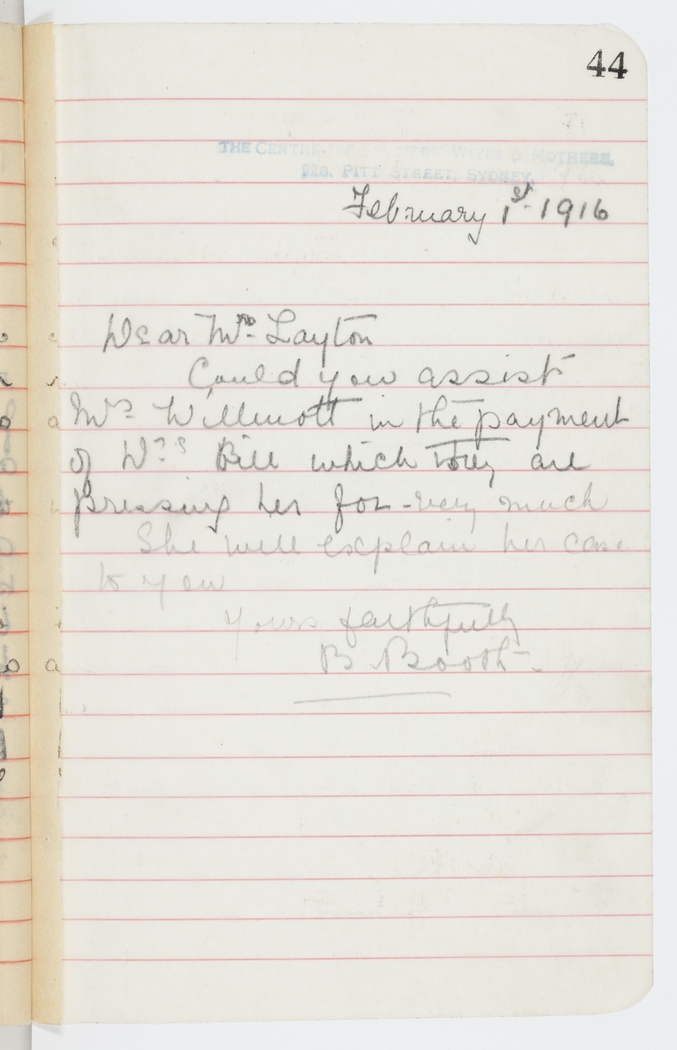 44
THE CENTRE FOR SOLDIERS' WIVES & MOTHERS,
PITT STREET, SYDNEY.
February 1st 1916
Dear Mrs Layton
Could you assist
Mrs Willmott in the payment
of Dr's Bill which they are
pressing her for - very much
She will explain her case
to you
Yours faithfully
B Booth -